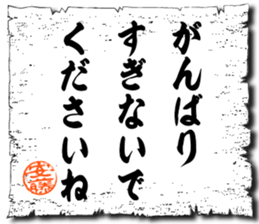 がんばり
すぎないで
くださいね
安藤